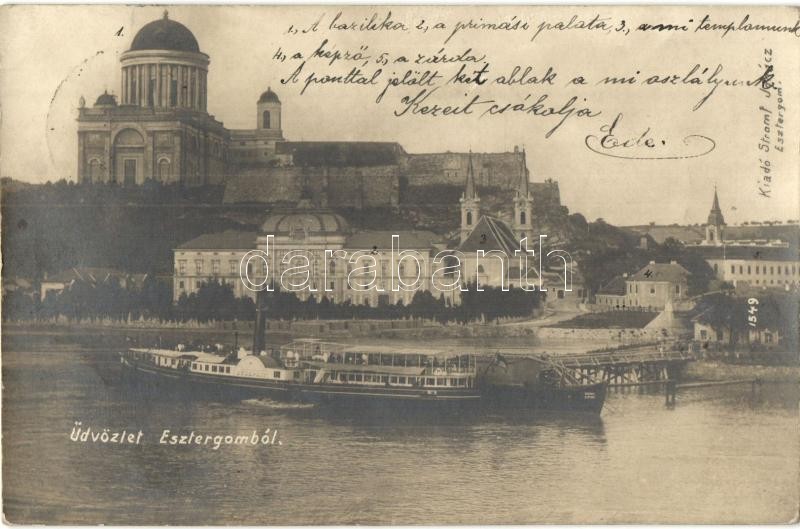 1.
1, A bazilika 2, a primási palata, 3, a mi templomunk
4, a képző, 5, a zárda
A ponttal jelölt két ablak a mi osztályunké
Kezeit csókolja
Ede.
Kiadó Stromf Ignácz
Esztergom
3.
2.
4.
5.
darabanth
1549
Üdvözlet Esztergomból.